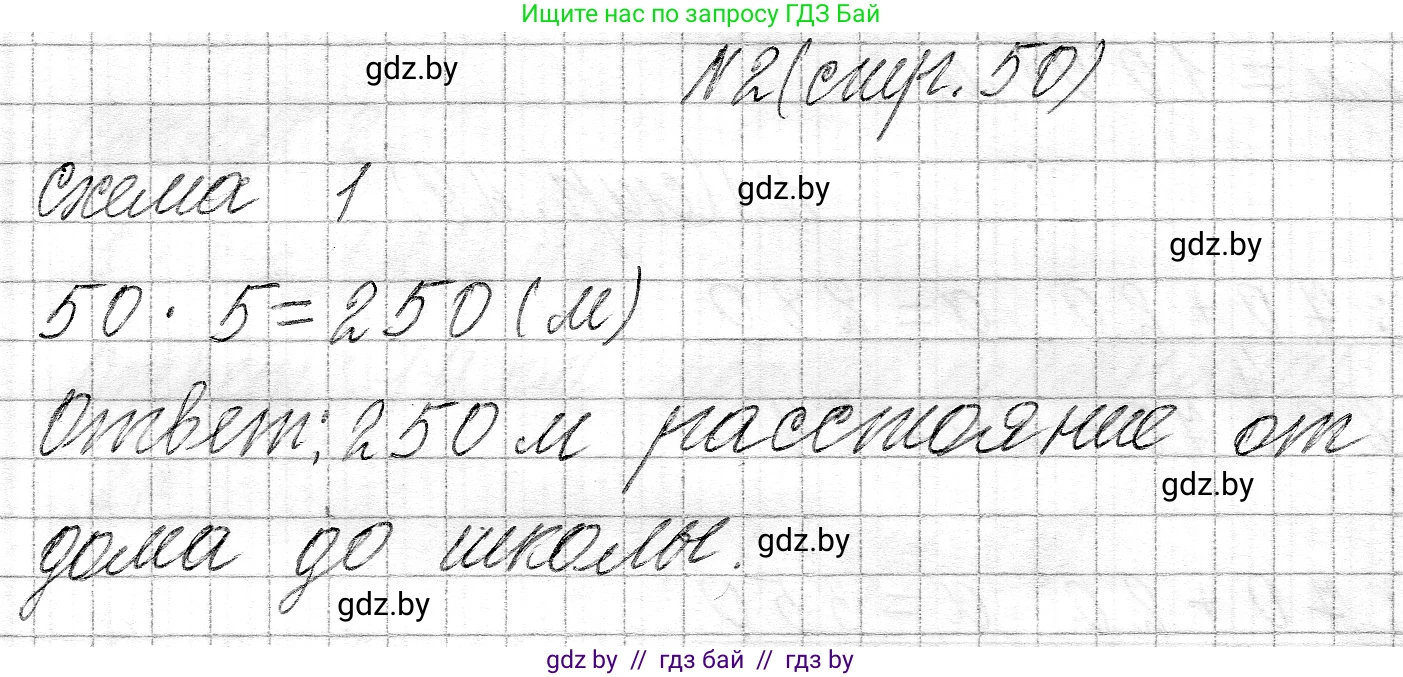 Ищите нас по запросу ГДЗ Бай
gdz.by
№2(стр. 50)
Схема 1
gdz.by
gdz.by
50 · 5 = 250 (м)
Ответ: 250 м расстояние от
gdz.by
дома до школы.
gdz.by
gdz.by
gdz by // гдз бай // гдз by